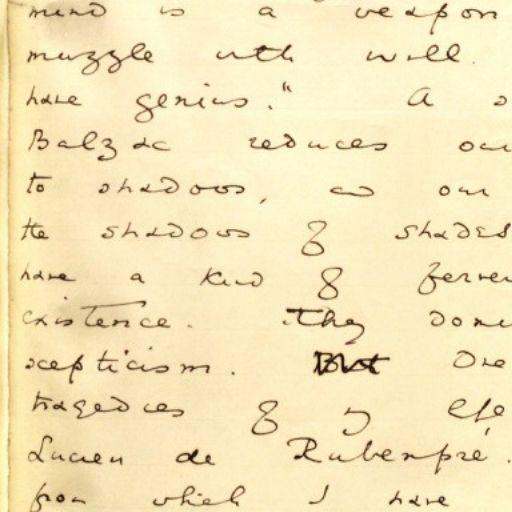 mind is a weapon
muzzle with will.
have genius." A s
Balzac reduces our
to shadows, and our
the shadows of shades
have a kind of ferven
existence. They domi
scepticism. But One
tragedies of my life
Lucien de Rubempré.
from which I have